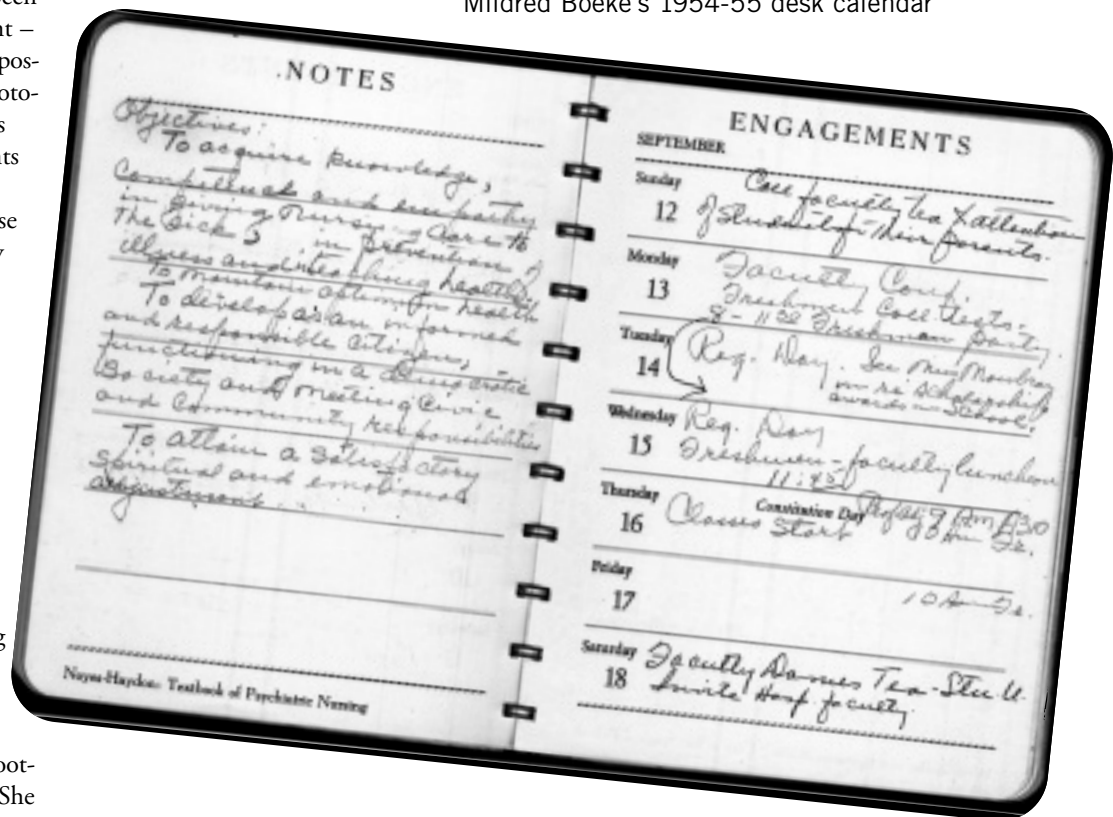 Mildred Boeke's 1954-55 desk calendar
nt –
pos-
oto-
s
nts
se
y
g
oot-
She
NOTES
Objectives:
To acquire knowledge,
Competence and empathy
in giving nursing care to
the sick; in prevention of
illness and in teaching health;
To maintain optimum health
To develop as an informed
and responsible citizen,
functioning in a democratic
society and meeting civic
and community responsibilities
To attain a satisfactory
spiritual and emotional
adjustment.
Noyes-Haydon: Textbook of Psychiatric Nursing
ENGAGEMENTS
SEPTEMBER
Sunday
12
Coll faculty tea
of students & their parents.
Monday
13
Faculty Conf.
Freshmen Coll. tests.
8-11 Freshman party.
Tuesday
14
Reg. Day. See Miss
in re scholarship
awards in School.
Wednesday
15
Reg. Day
Freshmen-faculty luncheon
11:45
Thursday
16
Constitution Day
Classes Start
Friday
17
10 Am
Saturday
18
Faculty Dames Tea-Stu U.
Invite Hosp faculty.